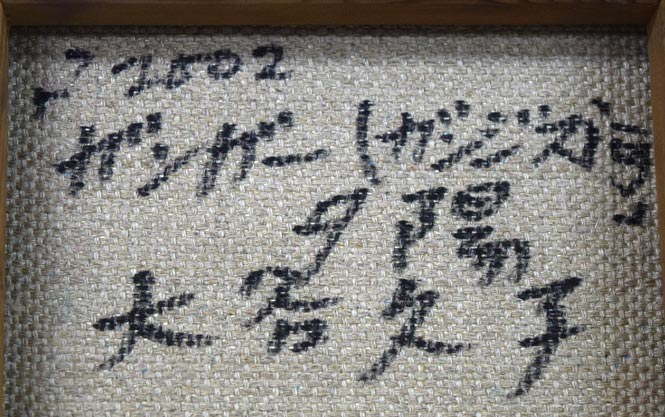 ア-2502
ガンガー(ガンジス河)
夕陽
大沼久子